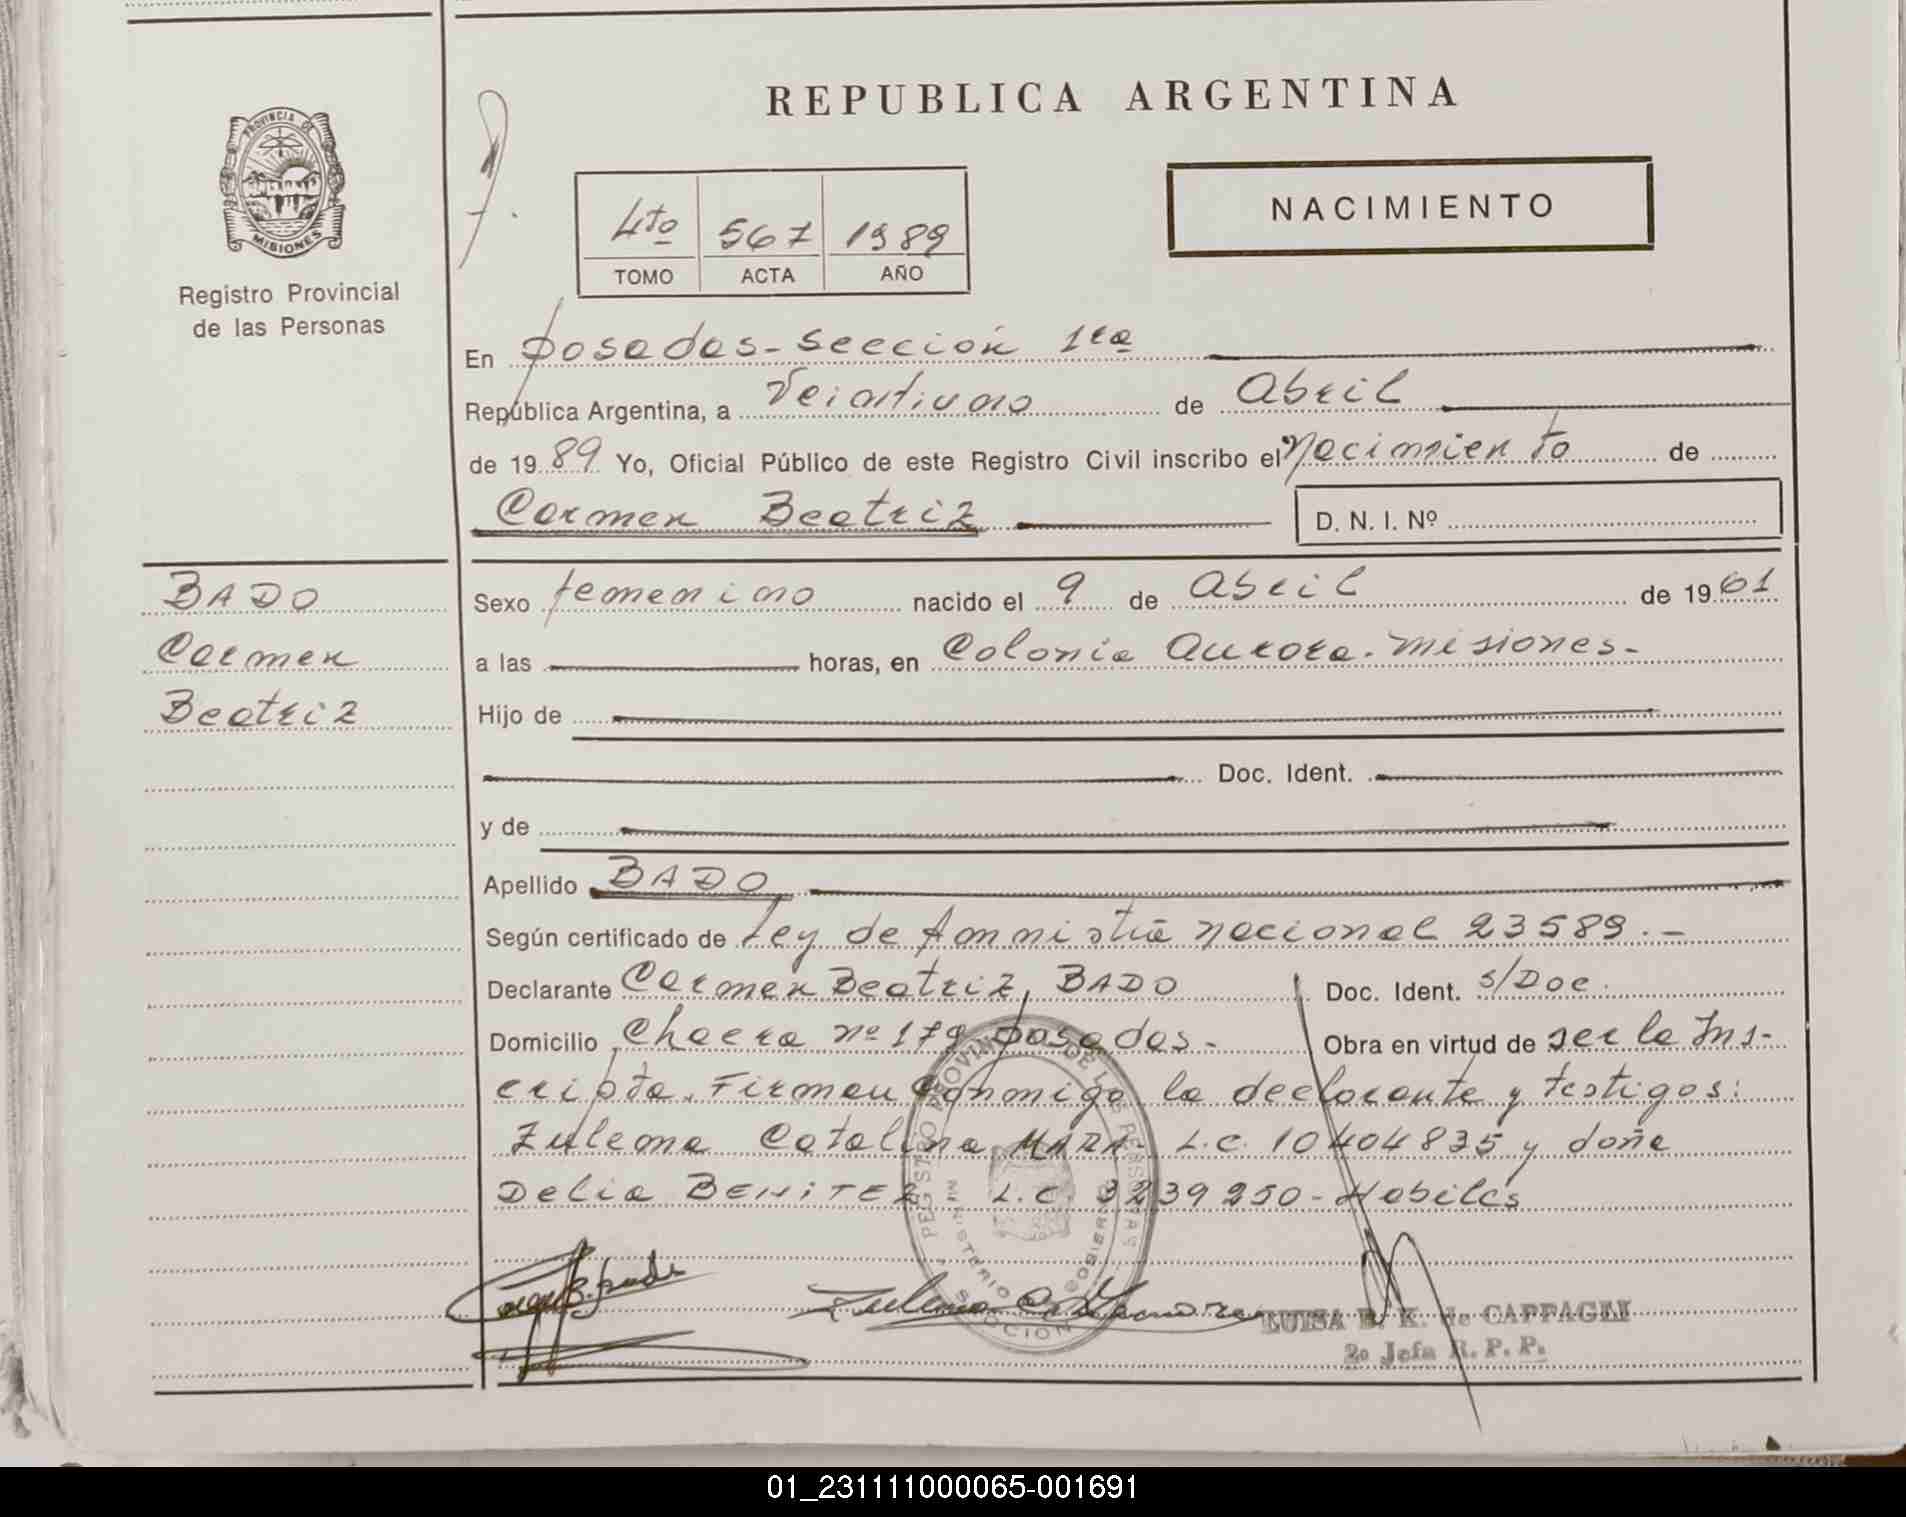 REPUBLICA ARGENTINA
PROVINCIA DE
MISIONES
Registro Provincial
de las Personas
NACIMIENTO
4to 567 1989
TOMO ACTA AÑO
En Posadas - Sección 1ra
República Argentina, a Veintiuno de Abril
de 1989 Yo, Oficial Público de este Registro Civil inscribo el Nacimiento de
Carmen Beatriz D. N. I. Nº
BADO
Carmen
Beatriz
Sexo femenino nacido el 9 de Abril de 1961
a las horas, en Colonia Aurora - Misiones -
Hijo de
Doc. Ident.
y de
Apellido BADO
Según certificado de Ley de Amnistia Nacional 23589. -
Declarante Carmen Beatriz, BADO Doc. Ident. s/Doc.
Domicilio Chacra nº 179 Posadas - Obra en virtud de ser la Ins-
cripta. Firman conmigo la declarante y testigos:
Zulema Catalina L.C. 10404835 y doña
Delia BENITEZ L.C. 3239250 - Habiles
REGISTRO PROVINCIAL DE LAS PERSONAS
MINISTERIO GOBIERNO
LUISA E. K. de CAFFAGLI
2º Jefa R. P. P.
01_231111000065-001691